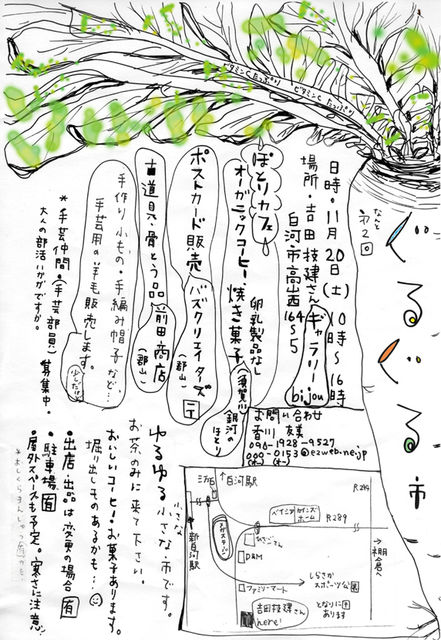 ビタミンCたっぷり
ビタミンCたっぷり
ぐるぐる市
なんと
第2回
日時・11月20日(土) 10時〜16時
場所・吉田枝建さんギャラリーbijou
白河市高山西164〜5
お問い合わせ
香川 友美
090-1928-9527
ぽとりカフェ
卵乳製品なし
オーガニックコーヒー 焼き菓子
(須賀川) 銀河のほとり
ポストカード販売 バズクリエイターズ
(郡山)
古道具・骨とう品 前田商店
(郡山)
手作り小もの・手編み帽子など…
手芸用の羊毛販売します。
少しだけ
*手芸仲間(手芸部員)募集中。
大人の部活いかがですか。
ゆるゆる小さな小さな市です。
お茶のみに来て下さい。
おいしいコーヒー・お菓子あります。
掘り出しものあるかも…
・出店・出品は変更の場合有
・駐車場有
・屋外スペースも予定。寒さに注意
*おしくらまんじゅう
↑白河駅
R294
ベイシア
カインズホーム
R289
→棚倉へ
新白河駅
ひざごさん
D&M
ファミリーマート
→しらさかスポーツ公園
となりにあります
吉田枝建さん
here!